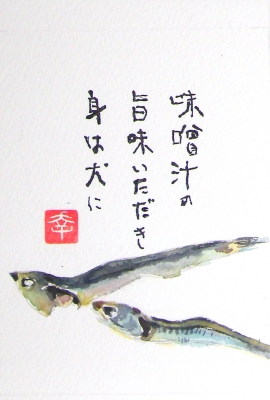 味噌汁の
旨味いただき
身は犬に
幸